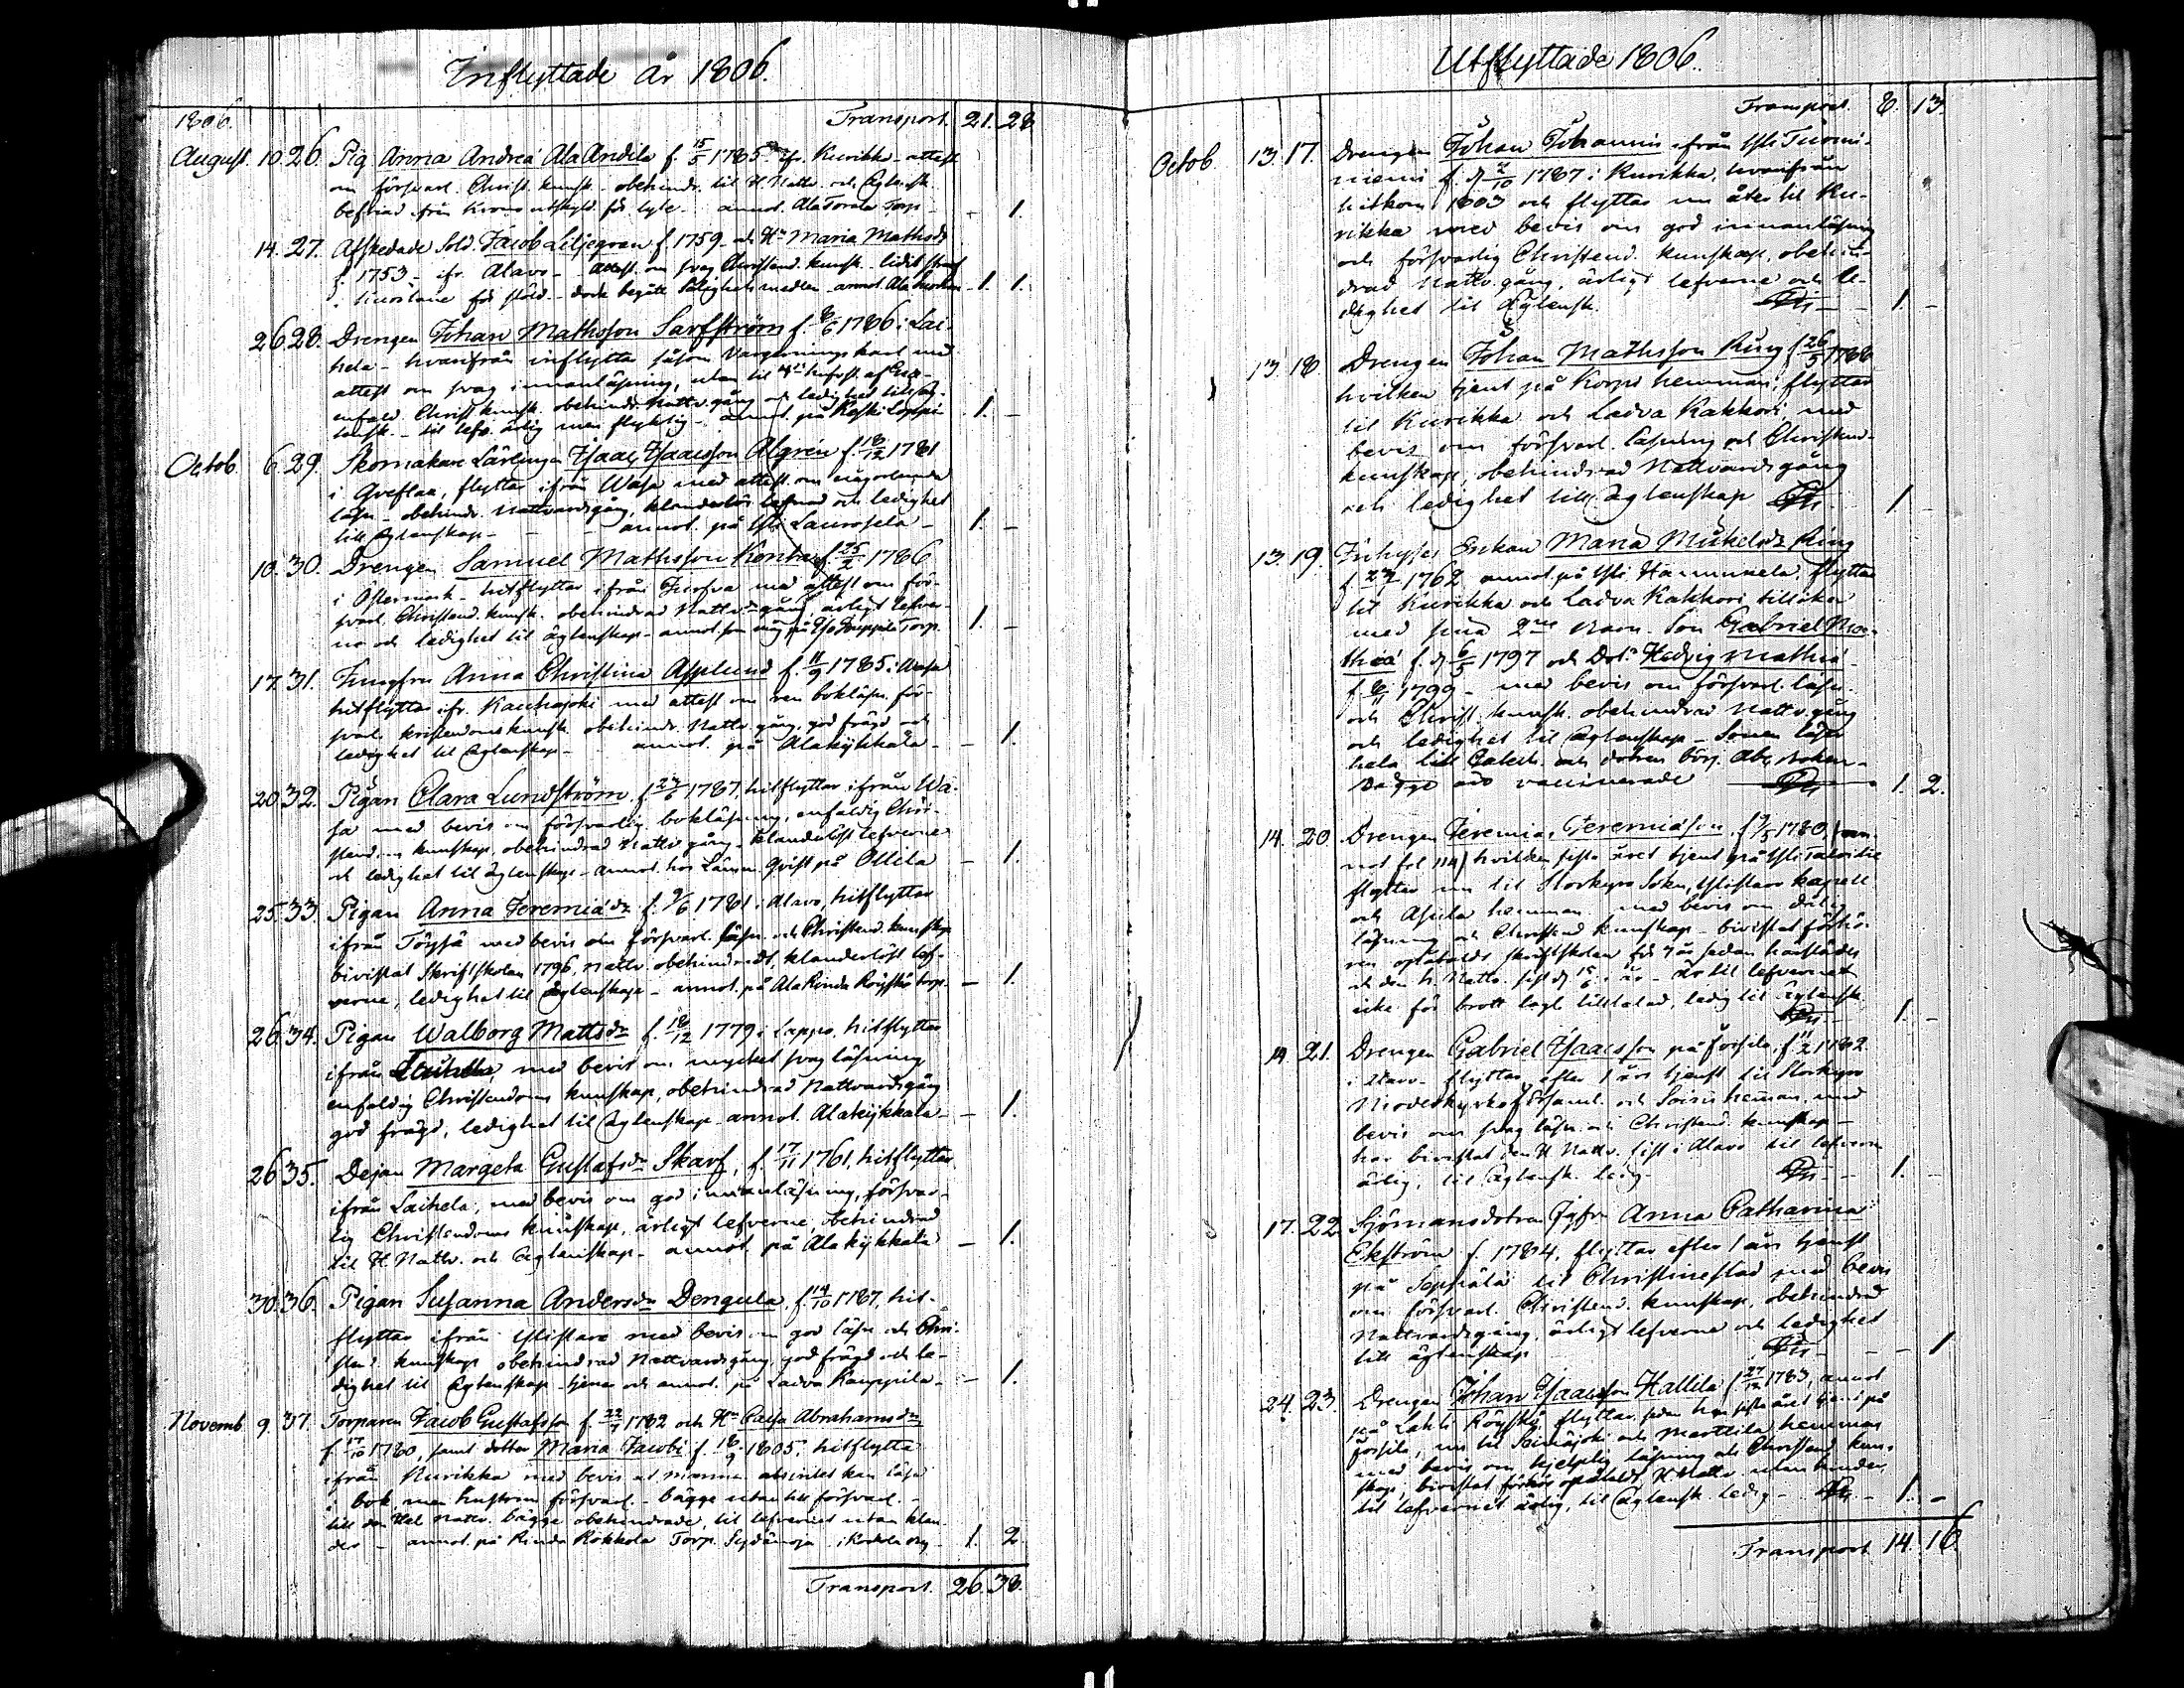 Inflyttade år 1806.
1806. Transport. 21. 28
August. 10. 26. Pig Anna Andreä Ala Andila f. 15/5 1785 ifr. Kurikka - attest
om försvarl. Christ. kunsk. obehindr. til H. Nattv. och Ägtensk.
befriad från Krono utskyld för lyte - annot. Ala Torala Torp - 1.
14. 27. Afskedade Sold. Jacob Liljegren f. 1759 och Hu Maria Mathsdr
f. 1753 - ifr. Alavo - attest om svag Christend. kunsk. lidit straff
för stöld - dock begått Salighets medlen - annot. Ala 1. 1.
26 28. Drengen Johan Mathsson Sarfström f. 8/6 1786 i Lai-
hela - hvarifrån inflyttar såsom Vargeringskarl med
attest om svag innanläsning, utan til
enfald. Christ. kunsk. obehindr. Nattv. gång och ledighet till Äg-
tensk. - til lefv. ärlig men flyktig - annot. på Koski Loppi 1. -
Octob. 6. 29. Skomakare Lärlingen Isaac Isaacsson Algrén f. 18/12 1781
i Greflax, flyttar ifrån Wasa med attest om någorlunda
läsn. - obehindr. Nattvardsgång, klanderlös lefnad och ledighet
till Ägtenskap - annot. på Yli Laurosela - 1. -
10. 30. Drengen Samuel Mathsson Kontas f. 25/2 1786
i Östermark - hitflyttar ifrån Jurfva med attest om för-
svarl. Christend. kunsk. obehindrad Nattv.gång, ärligt lefver-
ne och ledighet til ägtenskap - annot. på Torp. 1. -
17. 31. Jungfru Anna Christina Asplund f. 11/9 1785 i Wasa
hitflyttar ifr. Kauhajoki med attest om ren bokläsn. för-
svarl. kristendomskunsk. obehindr. Nattv. gång, god frägd och
ledighet til Ägtenskap - annot. på Alakykkälä - - 1.
20 32. Pigan Clara Lundström f. 27/6 1787, hitflyttar ifrån Wa-
sa med bevis om försvarlig bokläsning, enfaldig Chri-
stend. kunskap, obehindrad Nattv gång - klanderlöst lefverne
och ledighet til ägtenskap - annot. hos Länsm. Qvist på Ollila - 1.
25. 33. Pigan Anna Jeremiädr f. 9/6 1781 i Alavo, hitflyttar
ifrån Töysä med bevis om försvarl. läsn. och Christend. kunskap
bivistat Skriftskolan 1796, Nattv. obehindradt, klanderlöst lef-
verne, ledighet til ägtenskap - annot. på Ala Rinda Röyskö torp. - 1.
26. 34. Pigan Walborg Mattsdr f. 18/12 1779 i Lappo, hitflyttar
ifrån med bevis om mycket svag läsning
enfaldig Christendoms kunskap, obehindrad Nattvardsgång
god frägd, ledighet til Ägtenskap - annot. Alakykkälä - 1.
26 35. Dejan Margeta Gustafsdr Skarf, f. 17/11 1761, hitflyttar
ifrån Laihela, med bevis om god innanläsning, försvar-
lig Christendoms kunskap, ärligt lefverne, obehindrad
til H. Nattv. och Ägtenskap - annot. på Alakykkälä - 1.
30. 36. Pigan Susanna Andersdr Dengula, f. 14/10 1787, hit-
flyttar ifrån Ylistaro med bevis om god läsn och Chri-
stend. kunskap obehindrad Nattvardsgång, god frägd och le-
dighet til Ägtenskap - tjenar och annot. på Ladva Kauppila - - 1.
Novemb. 9. 37. Torparen Jacob Gustafsson f. 22/7 1782 och Hu Caisa Abrahamsdr
f. 17/10 1780, samt dotter Maria Jacobi f. 18/9 1805, hitflytta
ifrån Kurikka med bevis at mannen kan läsa
i bok, men hustrun försvarl. - bägge utantill försvarl. -
till den Hel. Nattv. bägge obehindrade, til lefvernet utan klan-
der - annot. på Rinda Kokkola Torp. 1. 2.
Transport. 26. 38.
Utflyttade 1806.
Transport. 8. 13.
Octob. 13. 17. Drengen Johan Johannis ifrån Yli Tuomi-
niemi f. d. 2/10 1787 i Kurikka, hvarifrån
hitkom 1803 och flyttar nu åter til Ku-
rikka med bevis om god innanläsning
och försvarlig Christend. kunskap, obehin-
drad Nattv. gång, ärligt lefverne och le-
dighet til Ägtensk. 1. -
13. 18. Drengen Johan Mathsson Ring f. 26/5 1788
hvilken tjent på Korpi hemman, flyttar
til Kurikka och Ladva Kakkori med
bevis om försvarl. läsning och Christend.
kunskap, obehindrad Nattvardsgång
och ledighet till ägtenskap 1
13. 19. Inhyses Enkan Maria Mickelsdr Ring
f. 1762 annot. på Yli Hannukela, flyttar
til Kurikka och Ladva Kakkori tillika
med sina 2ne Barn. Son Gabriel Ma-
thiä f. d. 6/5 1797 och Dotr Hedvig Mathiä
f. 8/11 1799 - med bevis om försvarl. läsn.
och Christ. kunsk. obehindrad Nattv. gång
och ledighet til Ägtenskap - Sonen läser
hela lilla Catech. och dotren börj. Abc boken -
Bägge äro vaccinerade 1. 2.
14. 20. Drengen Jeremias Jeremiäson f. 9/5 1780 (an-
not fol 114) hvilken sista året tjent på Yli
flyttar nu til Storkyro Sokn, Ylistaro kapell
och Asuila hemman med bevis om dålig
läsning och Christend. kunskap - bivistat förhö-
ren opåtaldt, skriftskolan för 7 år sedan härstädes
och den h. Nattv. sist d 15/6 i år - är til lefvernet
icke för brott lagl. tilltalad, ledig til Ägtensk. 1. -
14. 21. Drengen Gabriel Isaacsson på Försila f. 11/2 1782
i Alavo - flyttar efter 1 års tjenst til Storkyro
Moderkyrko församl. och heman, med
bevis om svag läsn. och Christend. kunskap -
har bivistat den H. Nattv. sist i Alavo til lefvern
ärlig, til Ägtensk. ledig - 1. -
17. 22. Sjömansdotren Jgfr Anna Catharina
Ekström f. 1784, flyttar efter 1 års tjenst
på Seppälä til Christinestad med bevis
om försvarl. Christend. kunskap, obehindrad
Nattvardsgång, ärligt lefverne och ledighet
till ägtenskap - - 1
24. 23. Drengen Johan Isaacsson Hallila f. 27/12 1783, annot
på Lahti Röyskö, flyttar, sedan han sista året tjent på
Försila, nu til Seinäjoki och Marttila hemman
med bevis om hjelplig läsning och Christend. kun-
skap, bivistat förhör opåtaldt, H. Nattv. utan hinder,
til lefvernet ärlig, til Ägtensk. ledig - 1. -
Transport 14. 16.